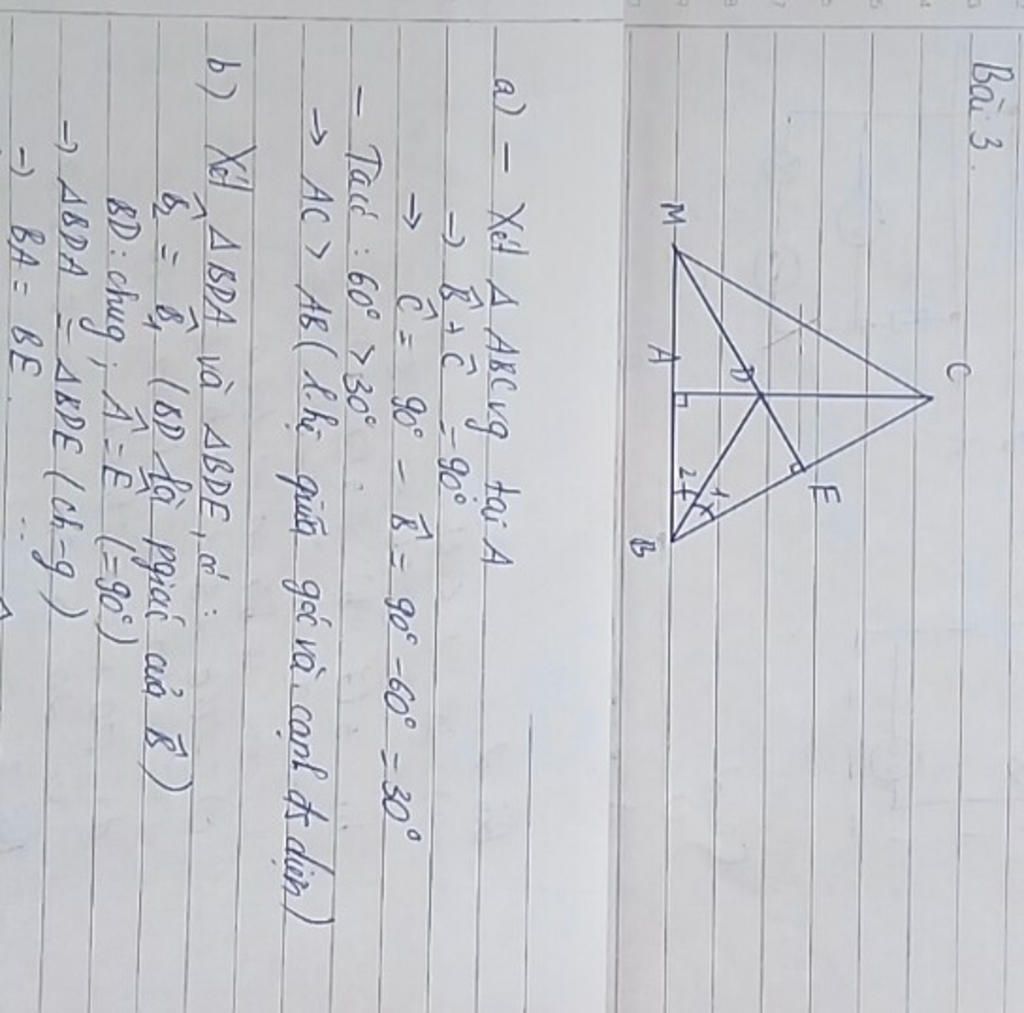 Bài 3.
C
D
E
M
A
B
1
2
a) - Xét Δ ABC vg tại A
→ B̂ + Ĉ = 90°
→ Ĉ = 90° - B̂ = 90° - 60° = 30°
- Ta có : 60° > 30°
→ AC > AB ( l.hệ giữa góc và cạnh đs diện)
b) Xét Δ BDA và ΔBDE, có :
B̂₂ = B̂₁ (BD là pgiác của B̂)
BD: chug ; Â = Ê (= 90°)
→ ΔBDA = ΔBDE (ch-g)
→ BA = BE